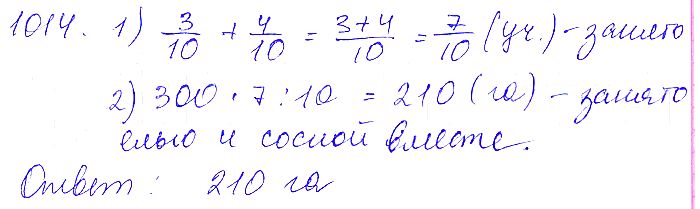 1014. 1) 3/10 + 4/10 = 3+4/10 = 7/10 (уч.) - занято
2) 300 · 7 : 10 = 210 (га) - занято
елью и сосной вместе.
Ответ: 210 га